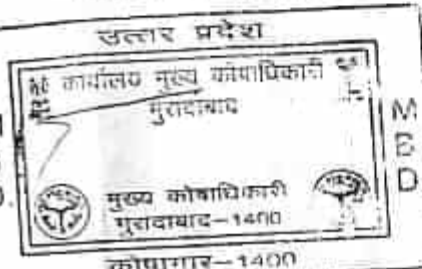 उत्तर प्रदेश
कार्यालय मुख्य कोषाधिकारी
मुरादाबाद
M
B
D
मुख्य कोषाधिकारी
मुरादाबाद-1400
कोषागार-1400